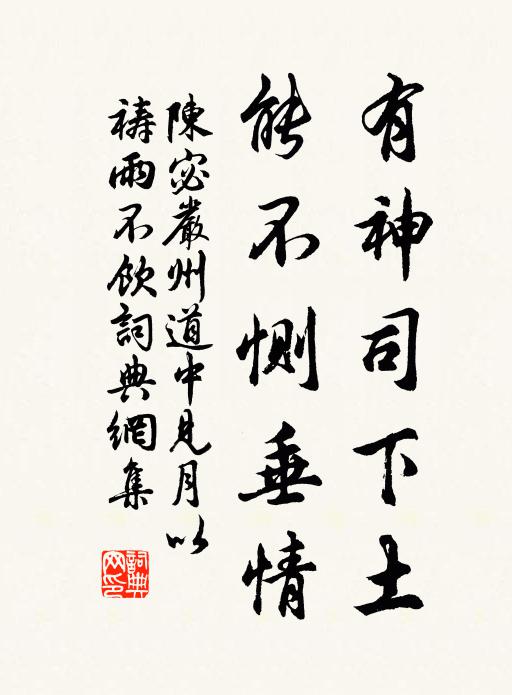 有神司下土
能不恻垂情
陳宓嚴州道中見月以
禱雨不飲詞典網集
詞典
网印